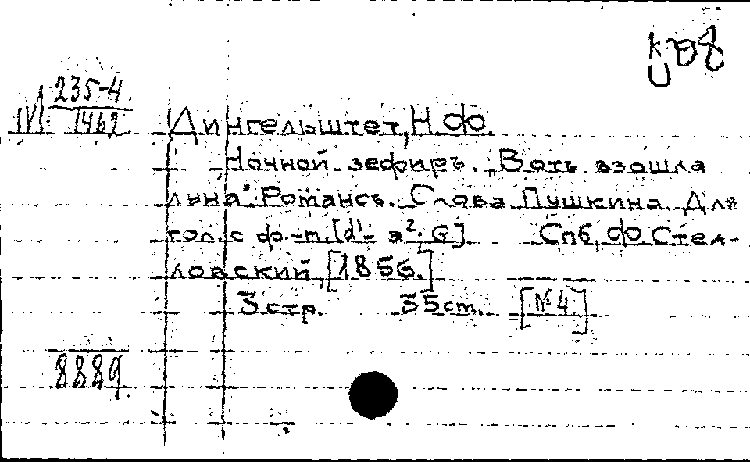 235-4
М 1462
Дингельштет, Н.Ф.
Ночной зефиръ. "Вотъ взошла
луна". Романсъ. Слова Пушкина. Для
гол. с ф.-п. [d¹- a²; G]. Спб, Ф. Стел-
ловский, [1856.]
3 стр. 35 cm. [№4.]
8889.